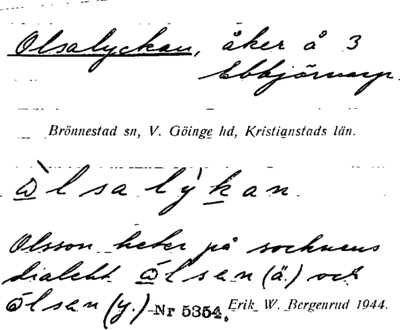 Olsalyckan, åker å 3
Ebbjörnarp.
Brönnestad sn, V. Göinge hd, Kristianstads län.
ò̲lsalỳk̲an.
Olsson heter på socknens
dialekt ò̲lsen (ä.) och
òlsen (y.) Nr 5354. Erik W. Bergenrud 1944.